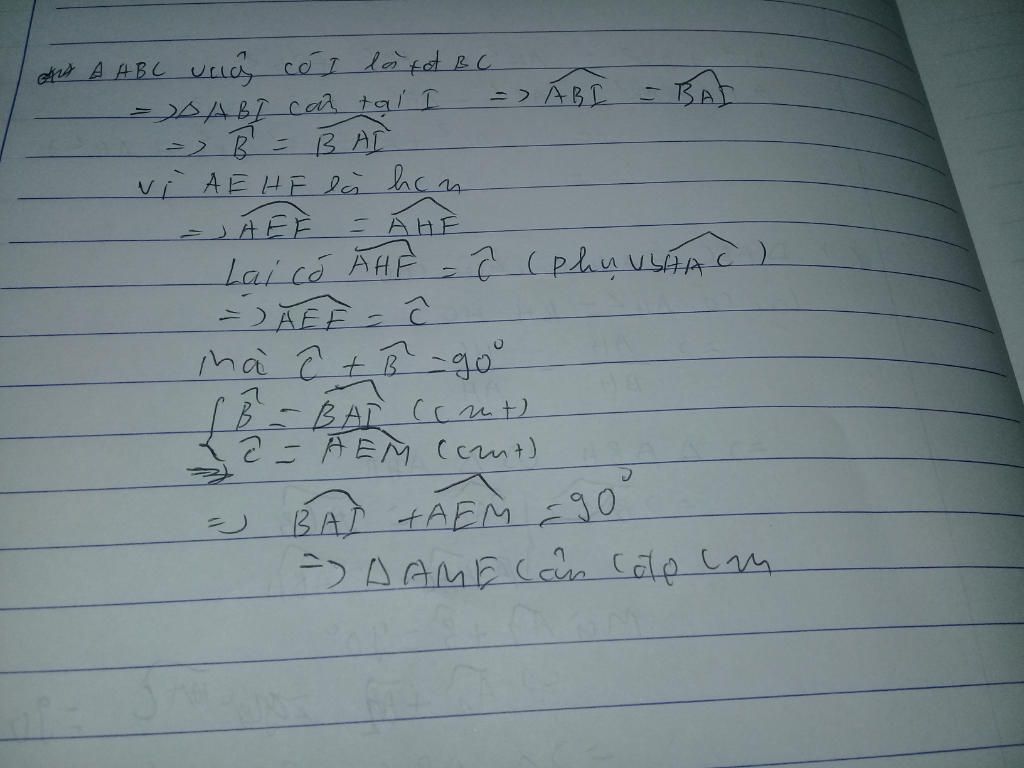 Δ ABC vuông có I là tđ BC
=> Δ ABI cân tại I => \widehat{ABI} = \widehat{BAI}
=> \widehat{B} = \widehat{BAI}
vì AEHF là hcn
=> \widehat{AEF} = \widehat{AHF}
Lại có \widehat{AHF} = \widehat{C} (phụ vs \widehat{HAC})
=> \widehat{AEF} = \widehat{C}
mà \widehat{C} + \widehat{B} = 90°
{ \widehat{B} = \widehat{BAI} (cmt)
\widehat{C} = \widehat{AEM} (cmt)
=> \widehat{BAI} + \widehat{AEM} = 90°
=> Δ AME cần